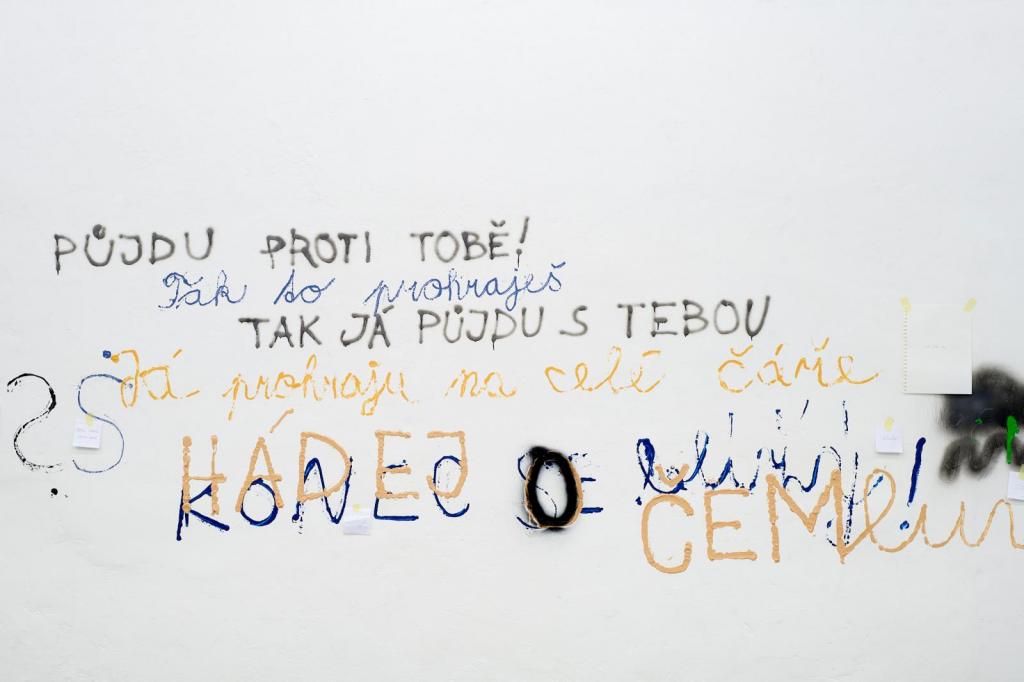 PŮJDU PROTI TOBĚ!
Tak to prohraješ
TAK JÁ PŮJDU S TEBOU
Já prohraju na celé čáře
HÁDEJ O ČEM
KONEC SE blíží!